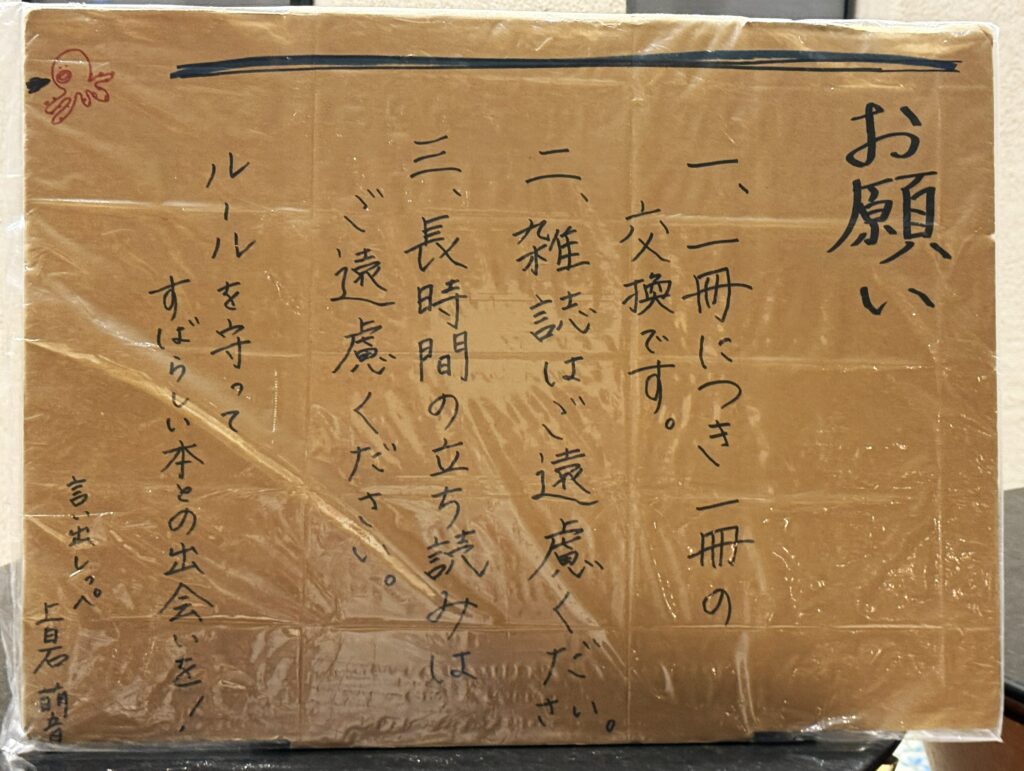 お願い
一、一冊につき一冊の
交換です。
二、雑誌はご遠慮ください。
三、長時間の立ち読みは
ご遠慮ください。
ルールを守って
すばらしい本との出会いを！
言い出しっぺ
上白石 萌音